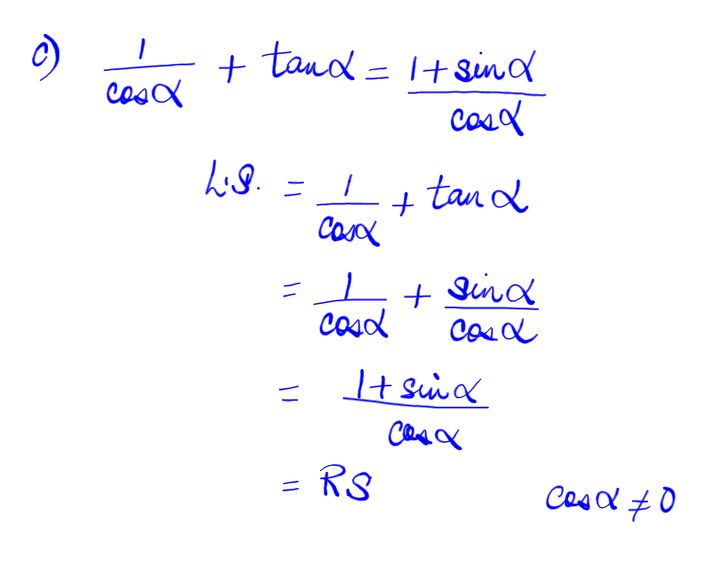 c) 1/cosα + tanα = (1+sinα)/cosα
L.S. = 1/cosα + tanα
= 1/cosα + sinα/cosα
= (1+sinα)/cosα
= RS cosα ≠ 0